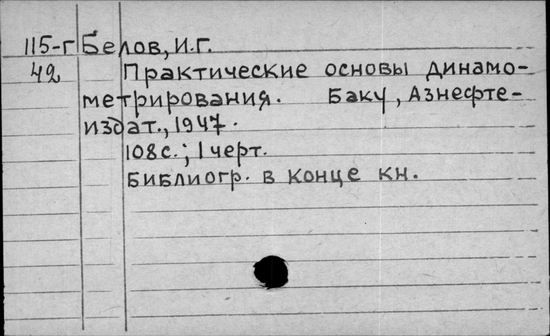 115-г Белов, И.Г.
42 Практические основы динамо-
метрирования. Баку, Азнефте-
издат., 1947.
108 с.; 1 черт.
Библиогр. в конце кн.